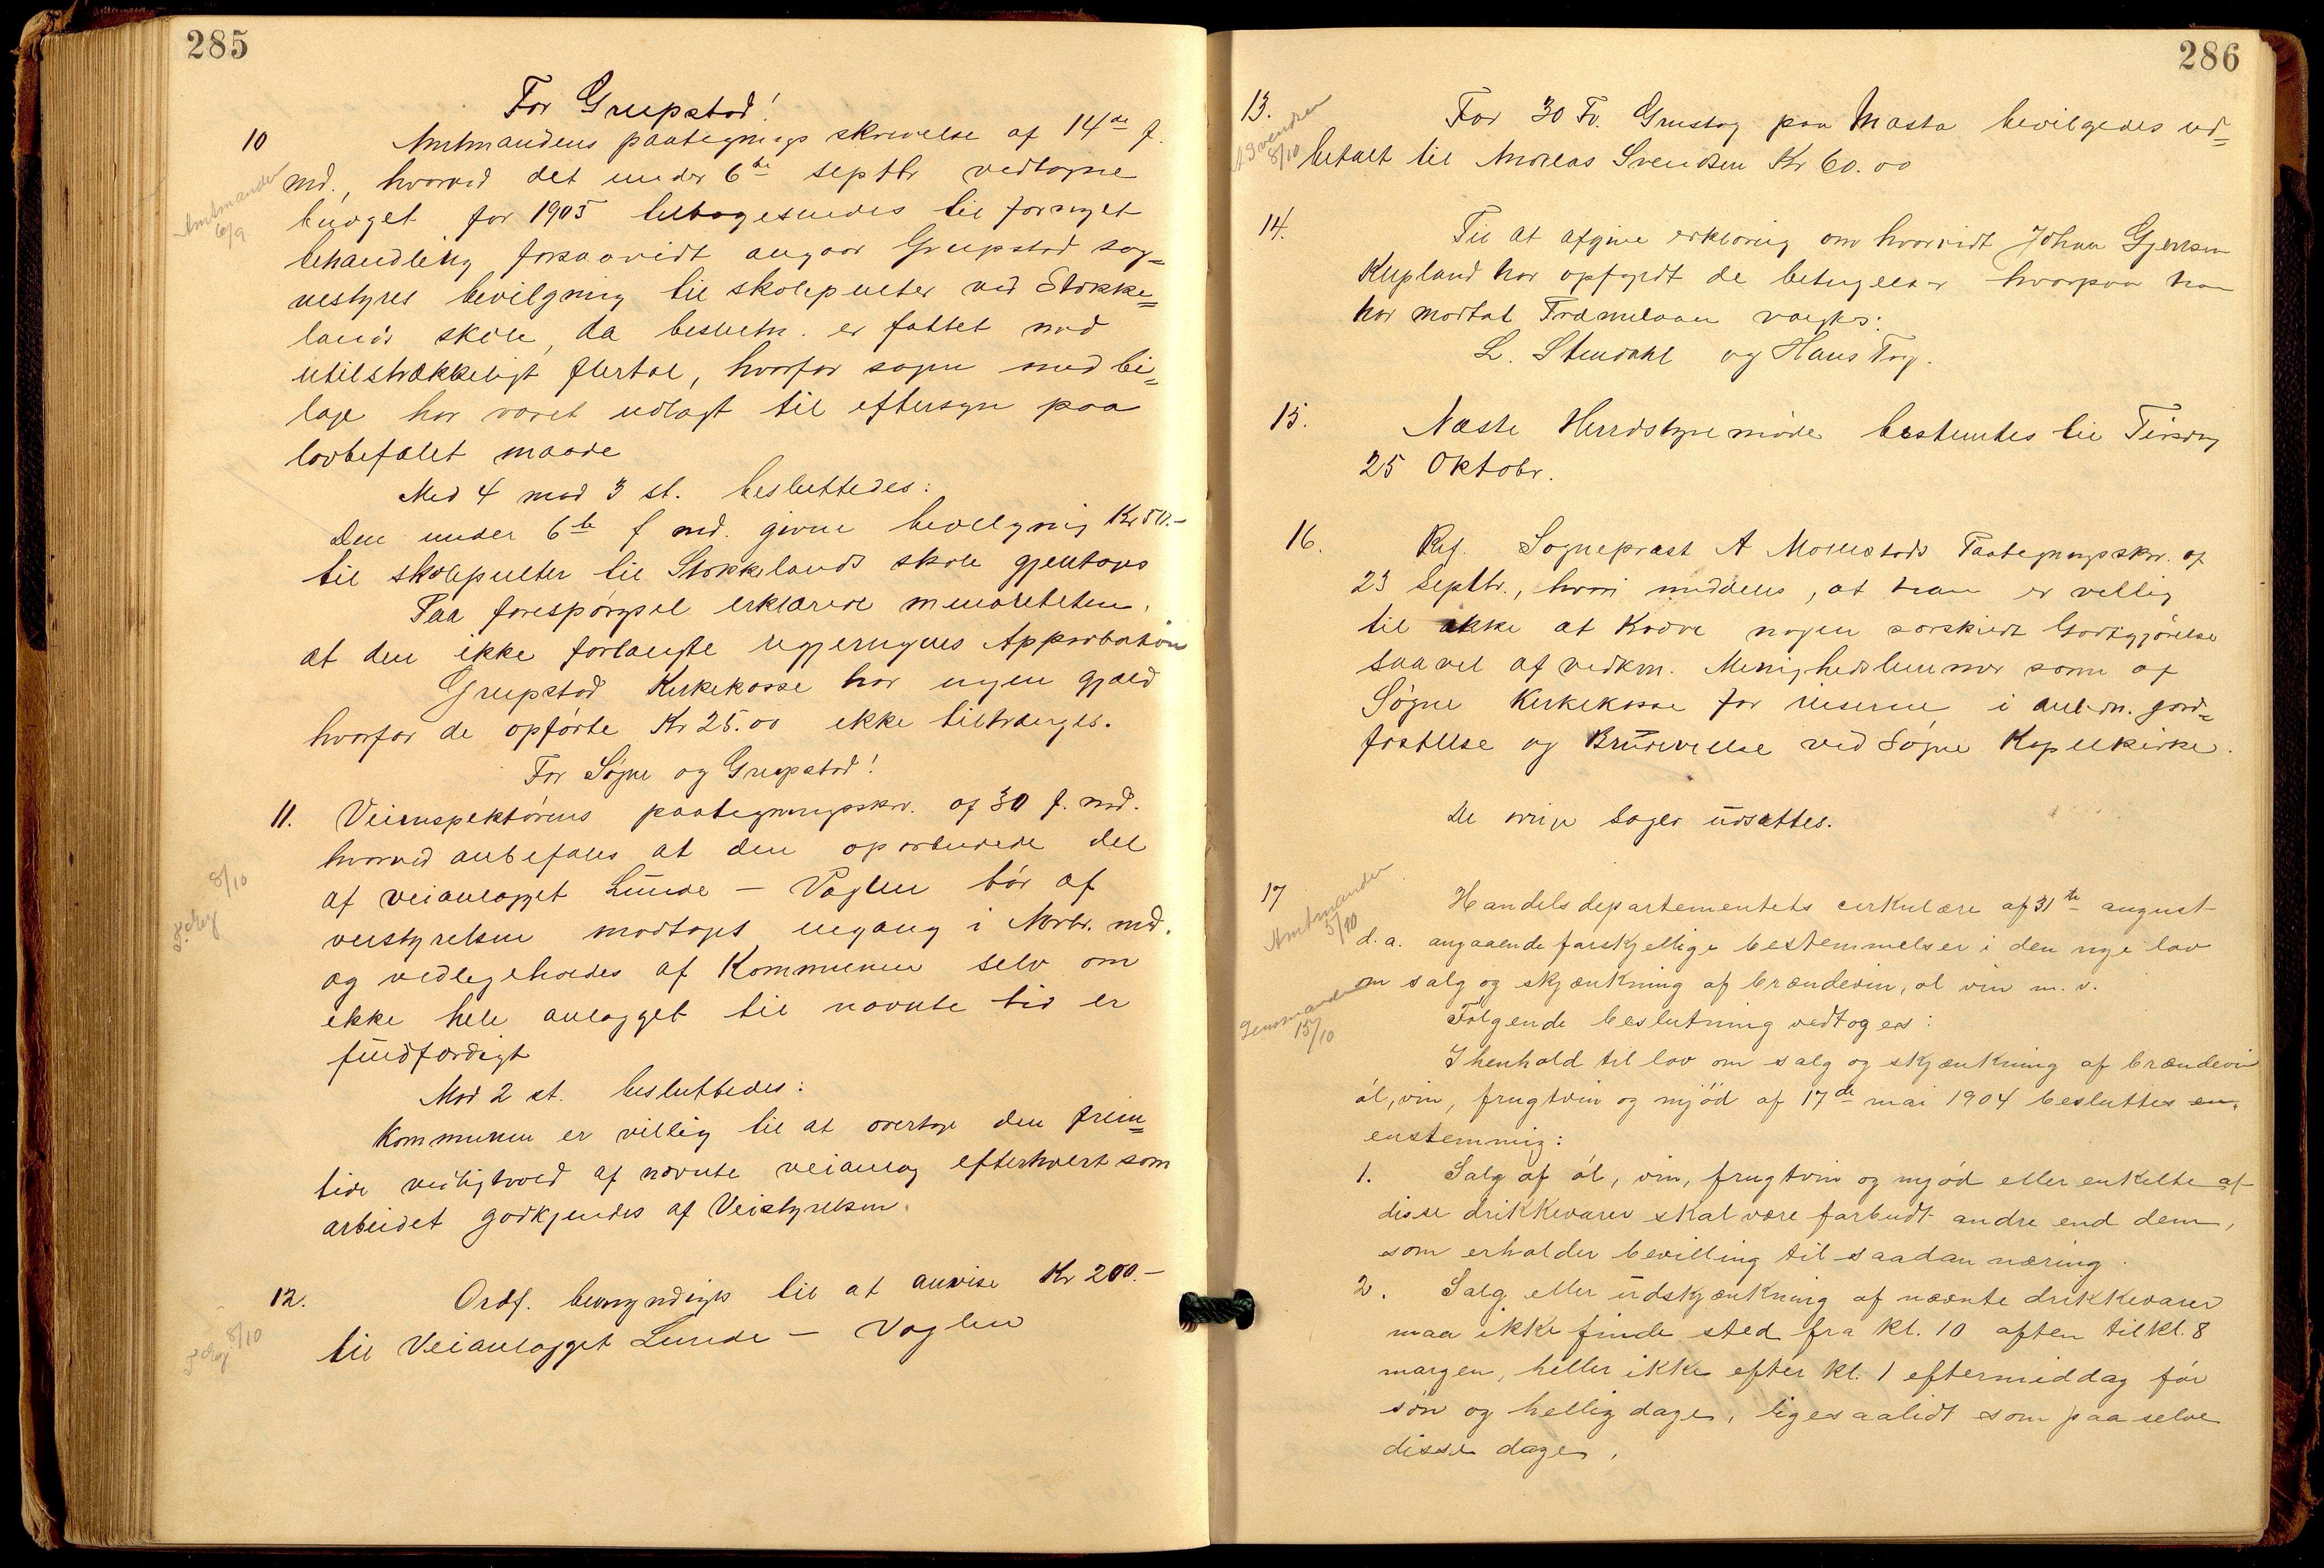 285
For Greipstad!
10 Amtmandens paategningsskrivelse af 14de f.
Amtmanden 6/9
md., hvorved det under 6te septbr vedtagne
budget for 1905 tilbagesendes til fornyet
behandling forsaavidt angaar Greipstad sog=
nestyres bevilgning til skolepulter ved Stokke=
lands skole, da beslutn. er fattet med
utilstrækkeligt flertal, hvorfor sagen med bi=
lage har været udlagt til eftersyn paa
lovbefalet maade
Med 4 mod 3 st. besluttedes:
Den under 6te f md. givne bevilgning Kr 50.-
til skolepulter til Stokkelands skole gjentages
Paa forespørgsel erklærede menoriteten,
at den ikke forlangte regjeringens Approbation
Greipstad Kirkekasse har ingen gjæld
hvorfor de opførte Kr 25.00 ikke tiltrænges.
For Søgne og Greipstad!
11. Veiinspektørens paategningsskr. af 30 f. md.
hvorved anbefales at den oparbeidede del
8/10
af veianlægget Lunde - Vaglen bør af
veistyrelsen modtages engang i Novbr. md.
og vedligeholdes af Kommunen selv om
ikke hele anlægget til nævnte tid er
fuldfærdigt
Mod 2 st. besluttedes:
Kommunen er villig til at overtage den frem=
tidige vedligehold af nævnte veianlæg efterhvert som
arbeidet godkjendes af Veistyrelsen.
12. Ordf. bemyndiges til at anvise Kr 200.-
8/10
til Veianlægget Lunde - Vaglen
286
13. For 30 Fv. Grustag paa Masta bevilgedes ud=
A Svendsen 8/10
betalt til Andreas Svendsen Kr 60.00
14. Til at afgive erklæring om hvorvidt Johan Gjertsen
Kleipland har opfyldt de betingelser hvorpaa han
har modtat Fræmelaan valgtes:
L. Stendahl og Hans Try.
15. Næste Herredstyremøde bestemtes til Tirsdag
25 Oktobr.
16. Ref. Sogneprest A Mollestads Paategningsskr. af
23 Septbr., hvori meddeles, at han er villig
til ikke at kræve nogen særskilt Godtgjørelse
saavel af vedkm. Menighedslemmer som af
Søgne Kirkekasse for reiserne i anledn. jord=
fæstelse og Brudevielse ved Søgne Kapelkirke.
De øvrige Sager udsattes.
17 Handelsdepartementets cirkulære af 31te august
Amtmanden 5/10
d.a. angaaende forskjellige bestemmelser i den nye lov
om salg og skjænkning af brændevin, øl vin m. v.
Lensmanden 15/10
Følgende beslutning vedtoges:
I henhold til lov om salg og skjænkning af brændevin
øl, vin, frugtvin og mjød af 17de mai 1904 besluttes en.
enstemmig:
1. Salg af øl, vin, frugtvin og mjød eller enkelte af
disse drikkevarer skal være forbudt andre end dem,
som erholder bevilling til saadan næring.
2. Salg eller udskjænkning af nævnte drikkevarer
maa ikke finde sted fra kl. 10 aften til kl. 8
morgen, heller ikke efter kl. 1 eftermiddag før
søn og hellig dage, ligesaalidt som paa selve
disse dage.